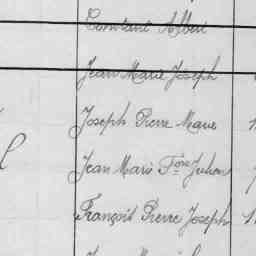 Constant Albert
Jean Marie Joseph
Joseph Pierre Marie
Jean Marie Fois Julien
François Pierre Joseph